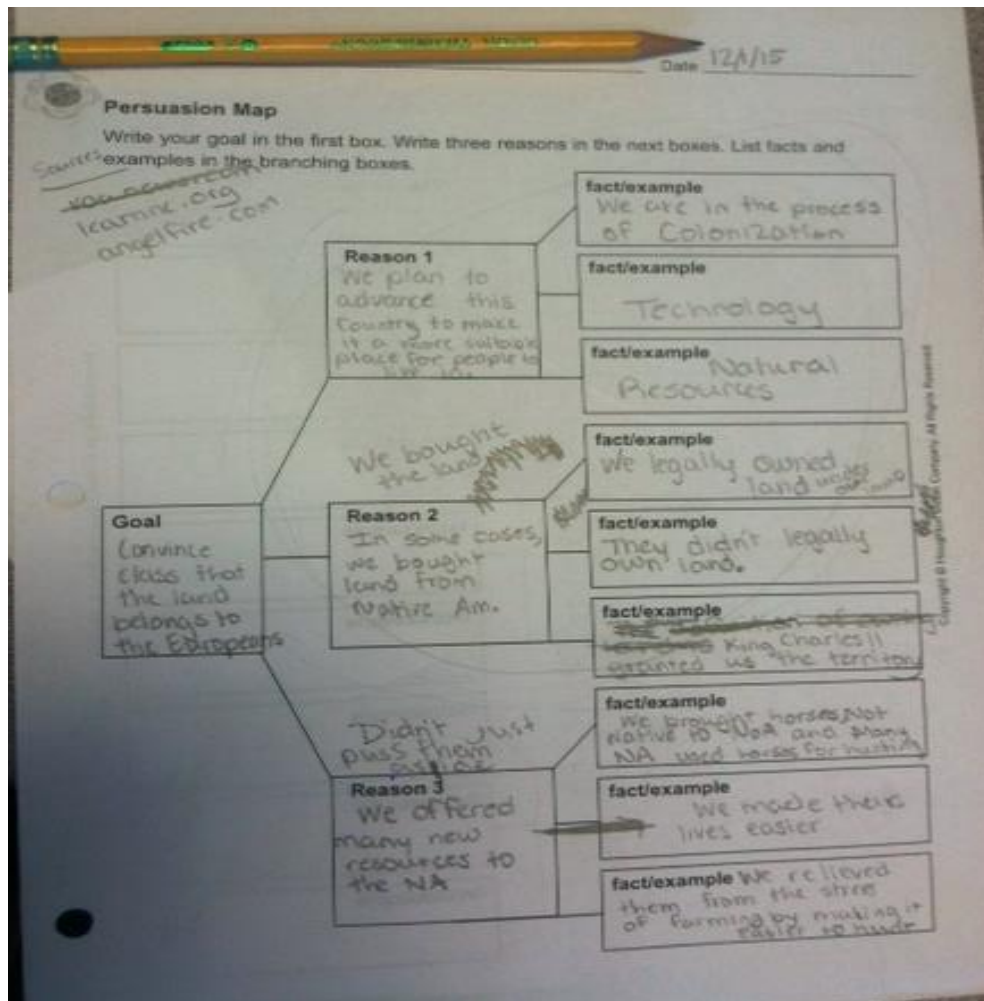 Date 12/1/15
Persuasion Map
Write your goal in the first box. Write three reasons in the next boxes. List facts and
examples in the branching boxes.
Sources
learnnc.org
angelfire.com
Goal
Convince
class that
the land
belongs to
the Europeans
Reason 1
We plan to
advance this
Country to make
it a more suitable
place for people to
live in.
fact/example
We are in the process
of Colonization
fact/example
Technology
fact/example
Natural
Resources
We bought
the land
Reason 2
In some cases,
we bought
land from
Native Am.
fact/example
We legally owned
land under
fact/example
They didn't legally
own land.
fact/example
King Charles II
granted us the territory
Didn't just
puss them
aside
Reason 3
We offered
many new
resources to
the NA
fact/example
We brought horses, Not
Native to NoA and Many
NA used horses for hunting
fact/example
We made their
lives easier
fact/example
We relieved
them from the
of farming by making it
easier to
Copyright © Houghton Mifflin Company. All Rights Reserved.